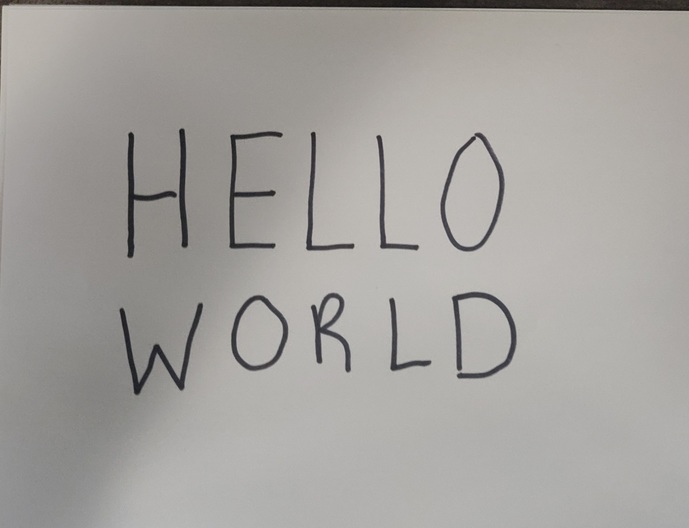 HELLO
WORLD